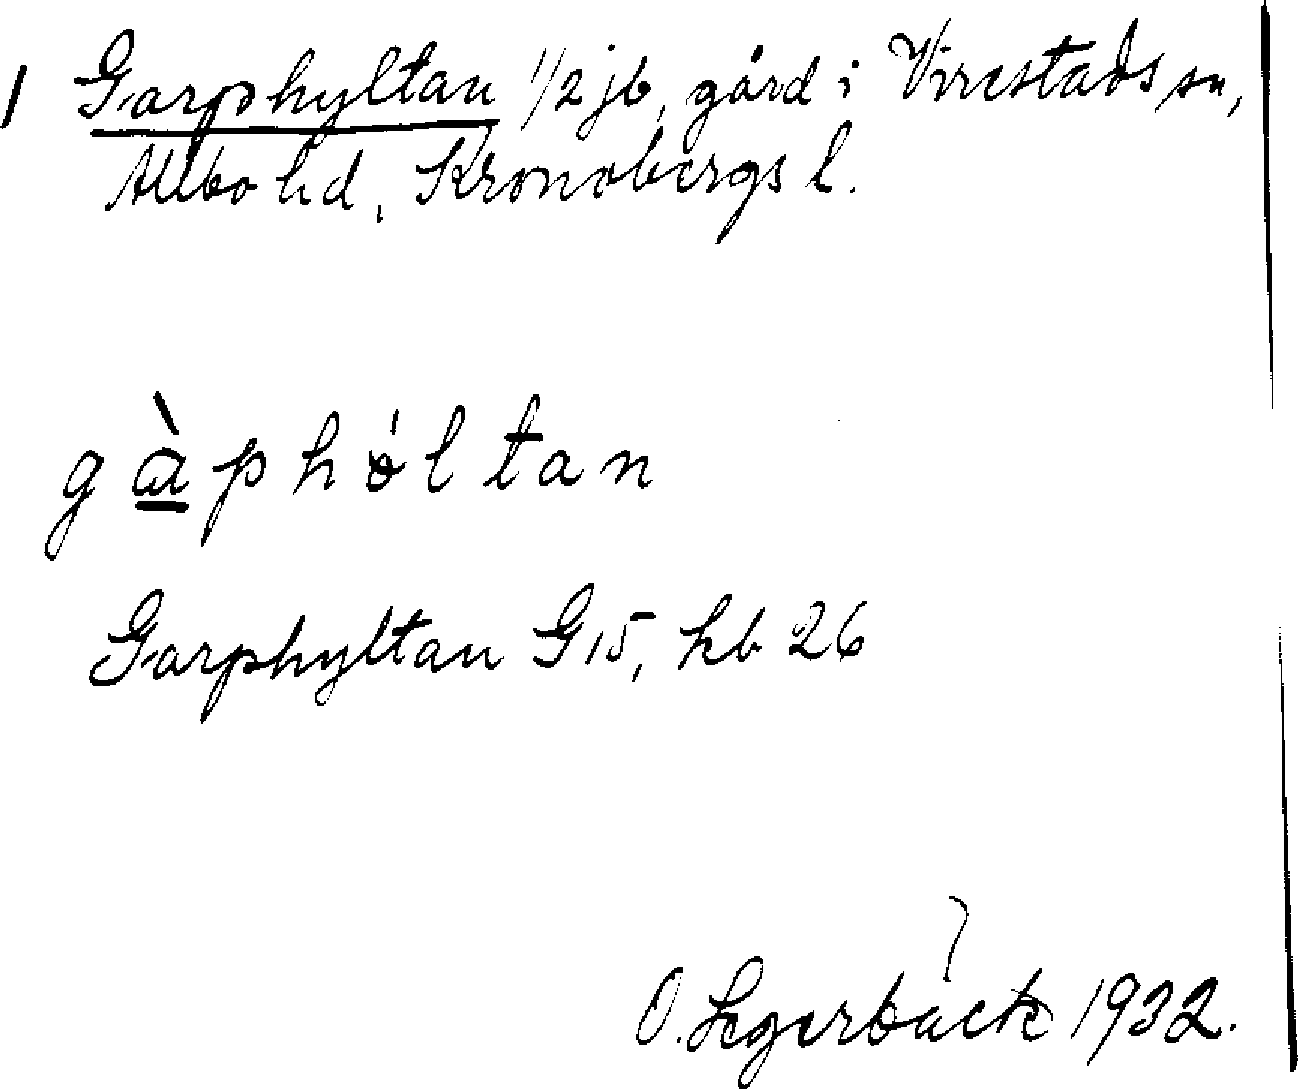 1 Garphyltan 1/2 jb, gård i Virestads sn,
Allbo hd, Kronobergs l.
gàphóltan
Garphyltan G15, kb 26
O. Legerbäck 1932.